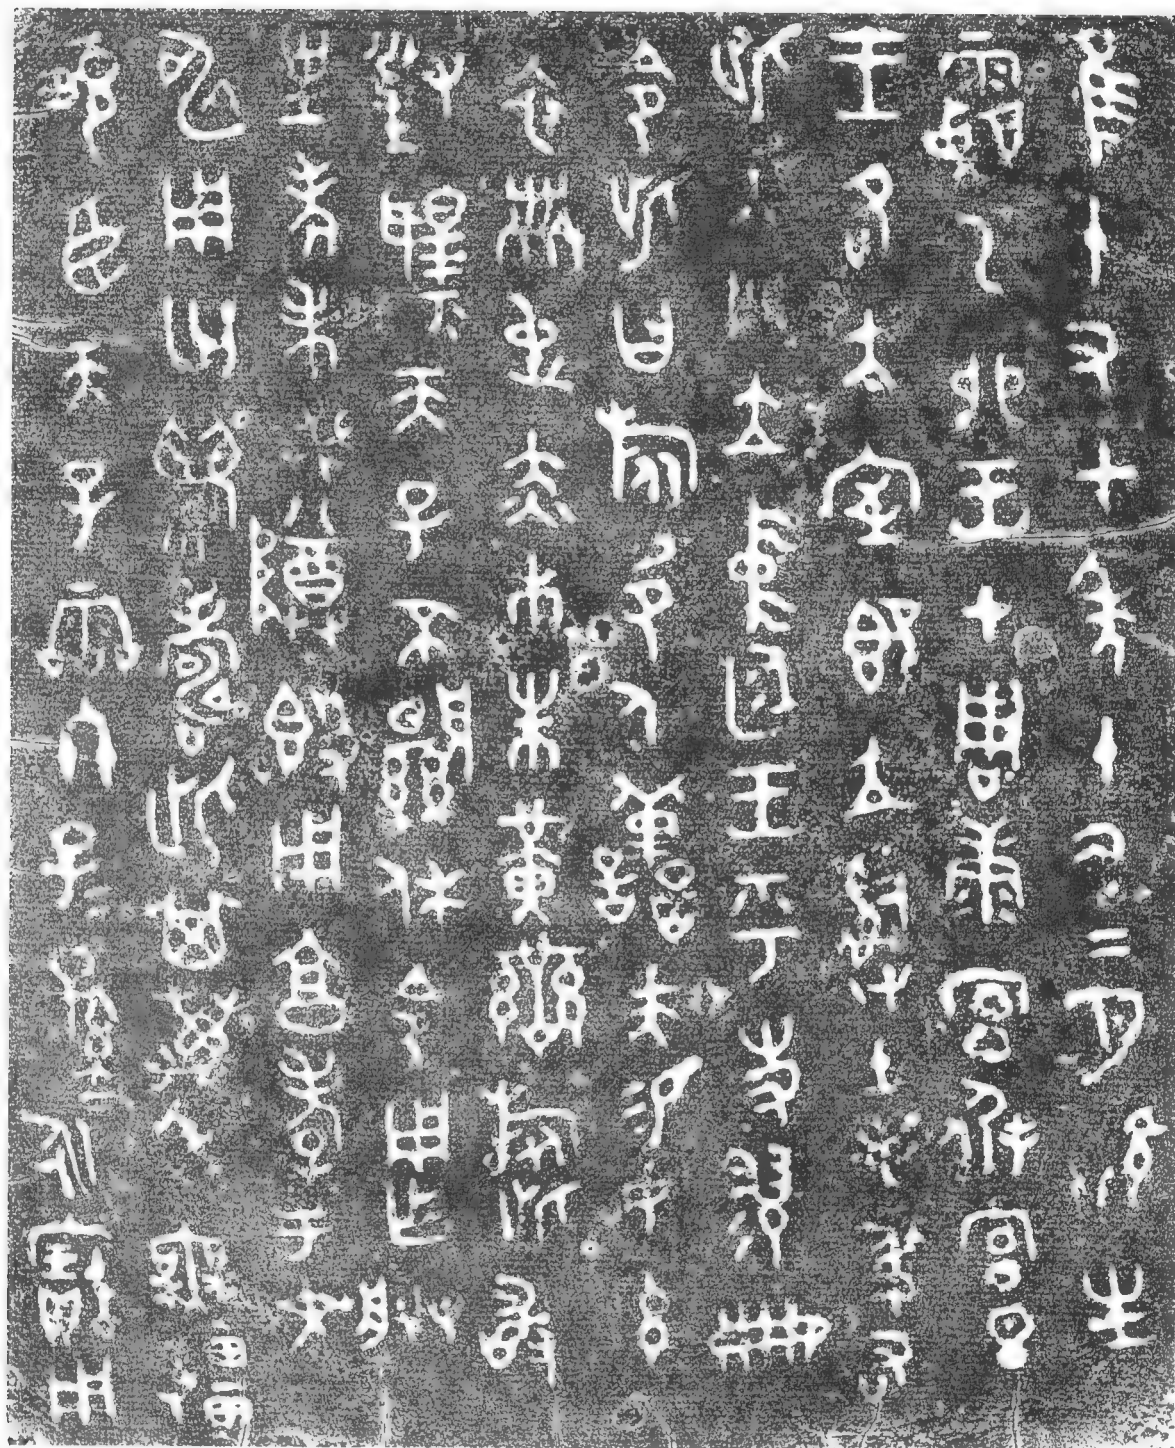 隹十又七年十又二月既生
霸乙卯王才周康宮徲宮旦
王各大室即立司土毛叔
右此入門立中廷王乎史翏冊
令此曰旅邑人善夫易女玄
衣黹屯赤市朱黃䜌旅此敢
對揚天子不顯休令用乍朕
皇考癸公尊𣪘用亯孝于文申
用匄眉壽此其萬年無彊
畯臣天子霝冬子子孫孫永寶用